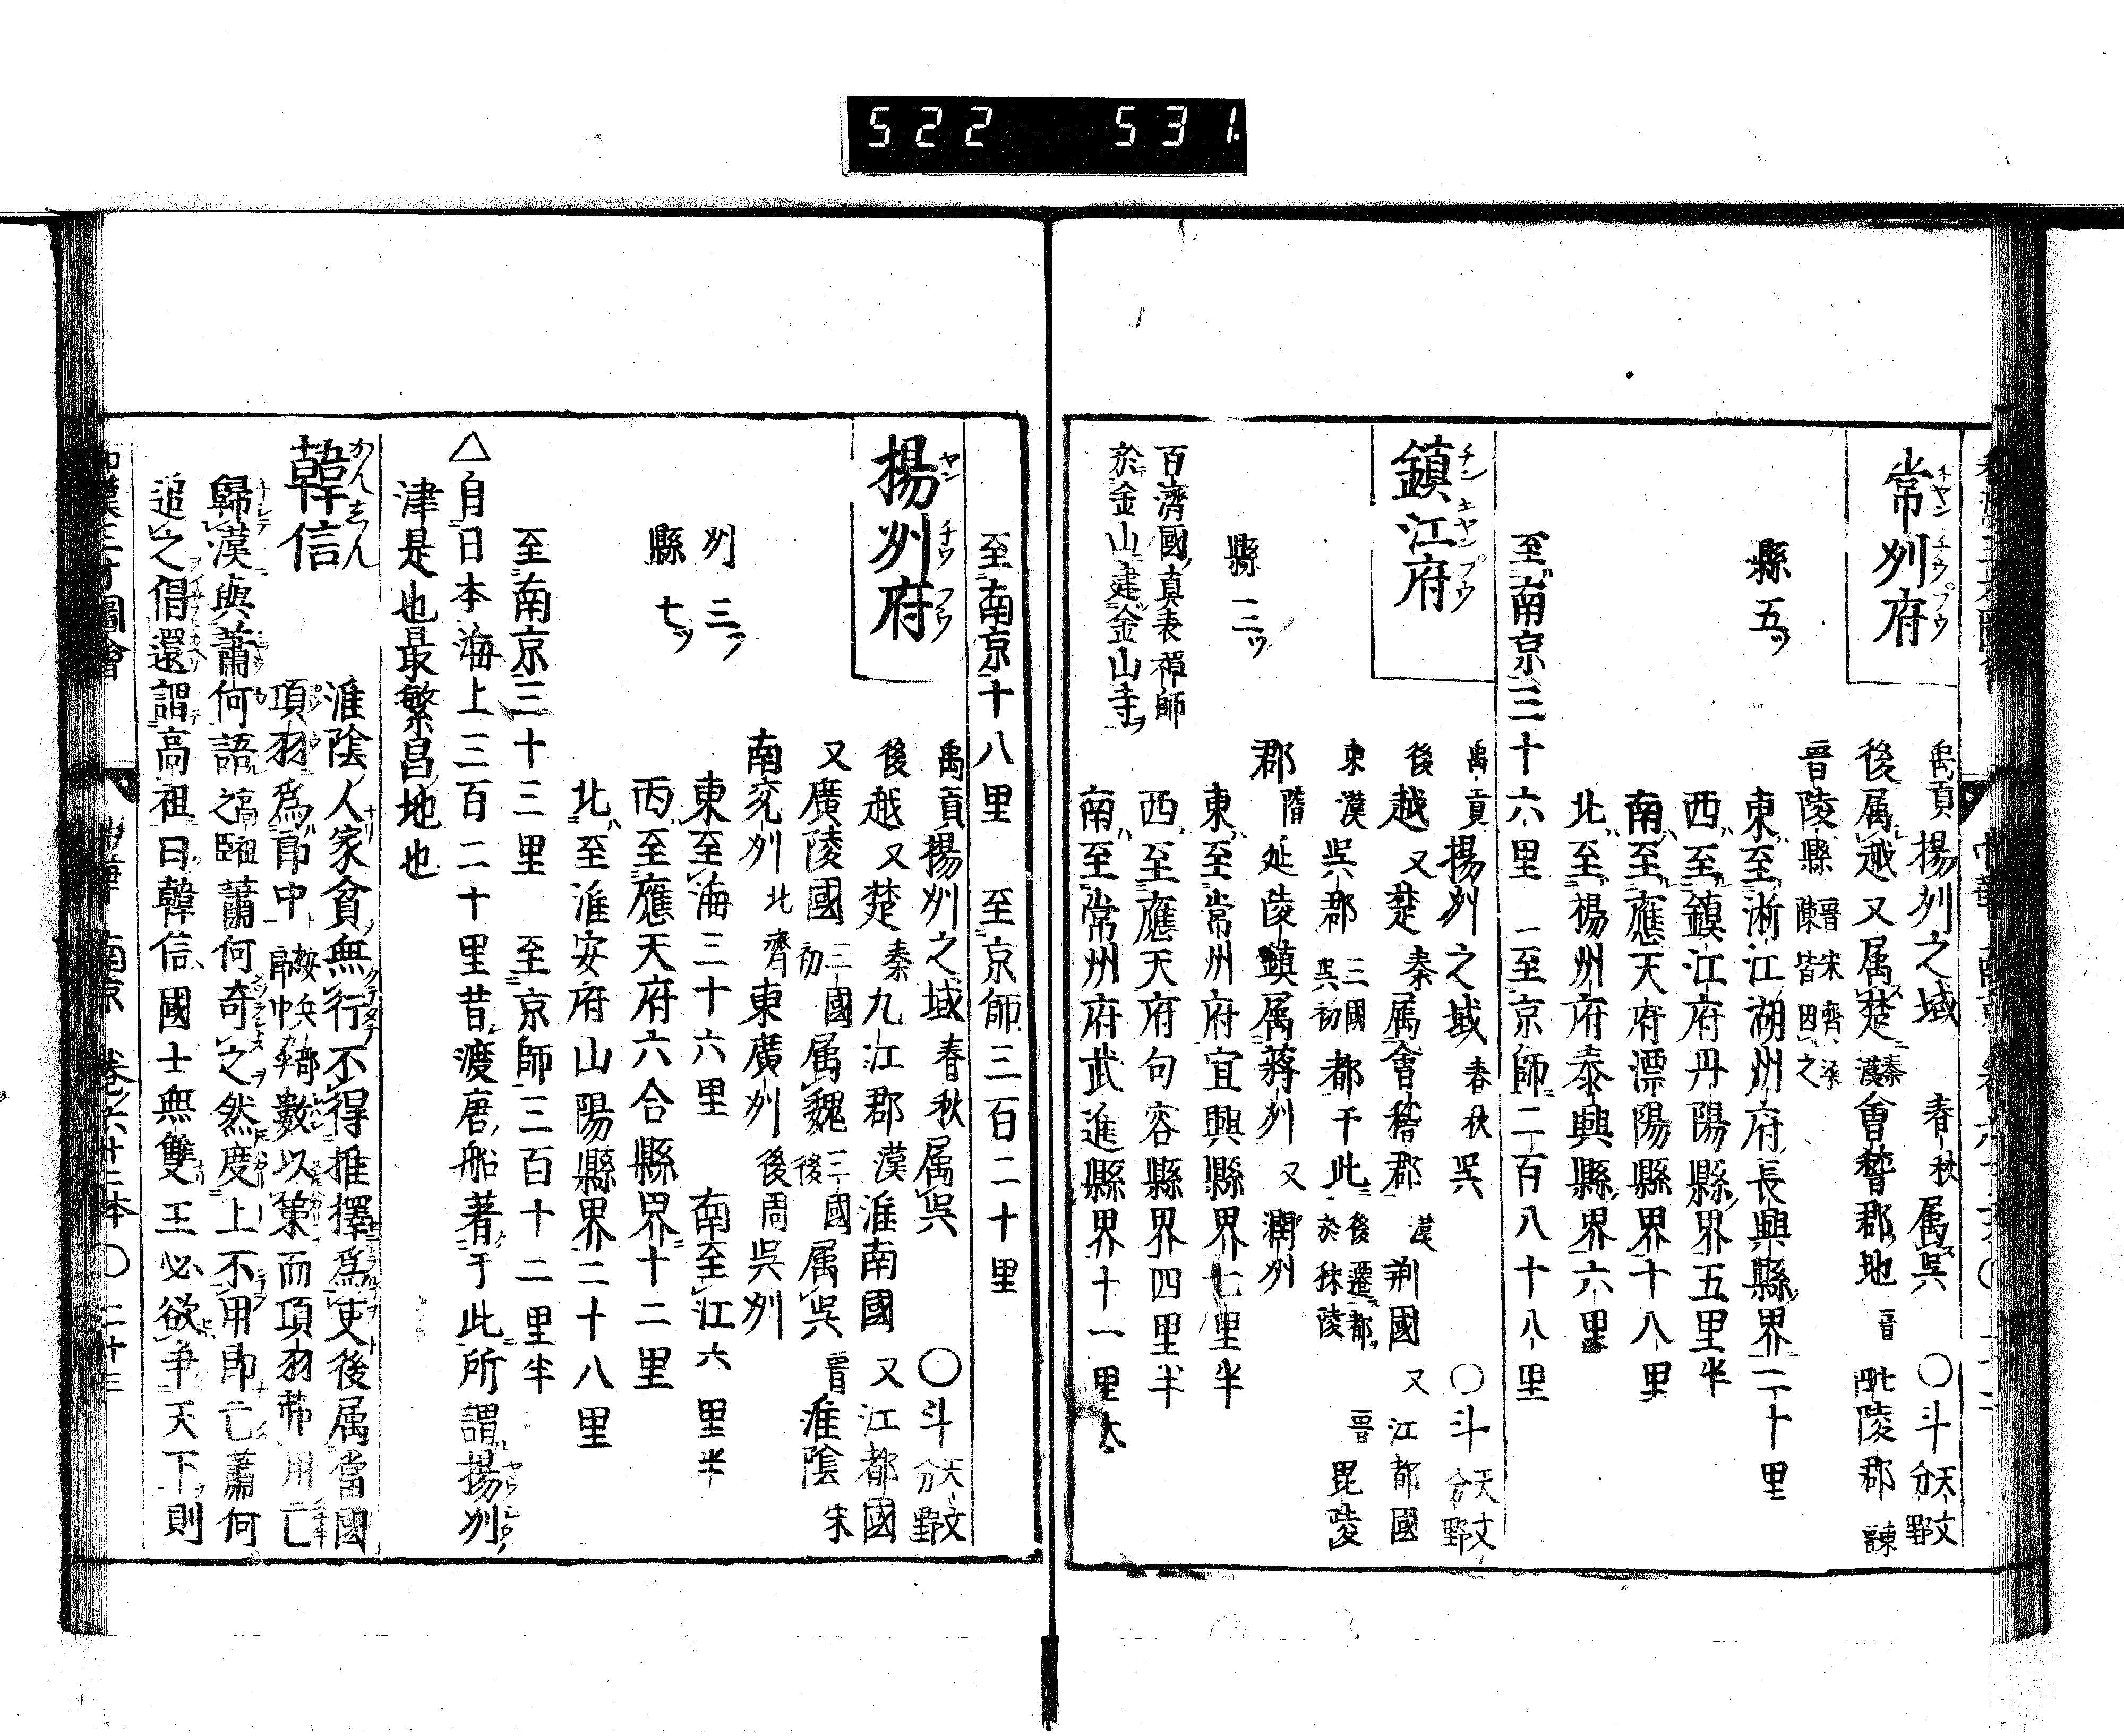 522 531
常州府
禹貢揚州之域 春秋属呉 〇斗天文分野
後属越又属楚秦漢會稽郡地晋毗陵郡
晋陵縣晋宋齊梁陳皆因之
縣五ツ
東至浙江湖州府長興縣界二十里
西至鎮江府丹陽縣界五里半
南至應天府漂陽縣界十八里
北至楊州府泰興縣界六里
至南京三十六里 至京師二百八十八里
鎮江府
禹貢揚州之域 春秋呉 〇斗天文分野
後越又楚秦属會稽郡漢荆國又江都國
東漢呉郡三國呉初都于此後遷都於秣陵晋毘陵
郡隋延陵鎮属蒋州又潤州
縣三ツ
東至常州府宜興縣界七里半
西至應天府句容縣界四里半
南至常州府武進縣界十一里大
百濟國真表禅師
於金山建金山寺
至南京十八里 至京師三百二十里
揚州府
禹貢揚州之域春秋属呉 〇斗天文分野
後越又楚秦九江郡漢淮南國又江都國
又廣陵國三國初属魏三國後属呉晋淮陰宋
南兖州北齊東廣州後周呉州
州三ツ
縣七ツ
東至海三十六里 南至江六里半
丙至應天府六合縣界十二里
北至淮安府山陽縣界二十八里
至南京三十三里 至京師三百十二里半
△自日本海上三百二十里昔渡唐船著于此所謂揚州
津是也最繁昌地也
韓信
淮陰人家貧無行不得推擇爲吏後属當國
項羽爲郎中按兵部郎中卒騎數以策而項羽弗用亡
歸漢與蕭何語之高祖臨蕭何奇之然度上不用即亡蕭何
追之倡還謂高祖曰韓信國士無雙王必欲争天下則
和漢三才圖會 中華 南京 卷六十二本 〇 二十三